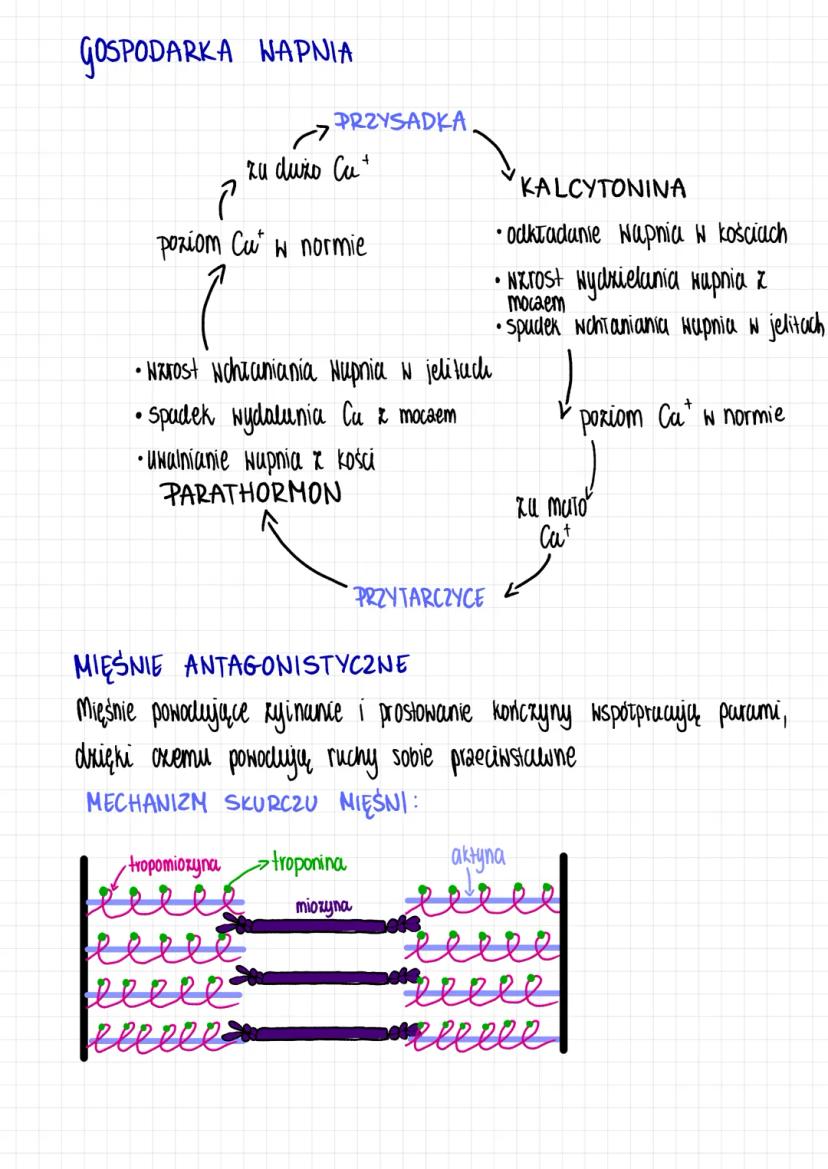 GOSPODARKA WAPNIA
PRZYSADKA
za dużo Ca⁺
poziom Ca⁺ w normie
KALCYTONINA
• odkładanie wapnia w kościach
• wzrost wydzielania wapnia z
moczem
• spadek wchłaniania wapnia w jelitach
• wzrost wchłaniania wapnia w jelitach
• spadek wydalania Ca z moczem
• uwalnianie wapnia z kości
PARATHORMON
poziom Ca⁺ w normie
za mało
Ca⁺
PRZYTARCZYCE
MIĘŚNIE ANTAGONISTYCZNE
Mięśnie powodujące zginanie i prostowanie kończyny współpracują parami,
dzięki czemu powodują ruchy sobie przeciwstawne
MECHANIZM SKURCZU MIĘŚNI:
tropomiozyna
troponina
aktyna
miozyna